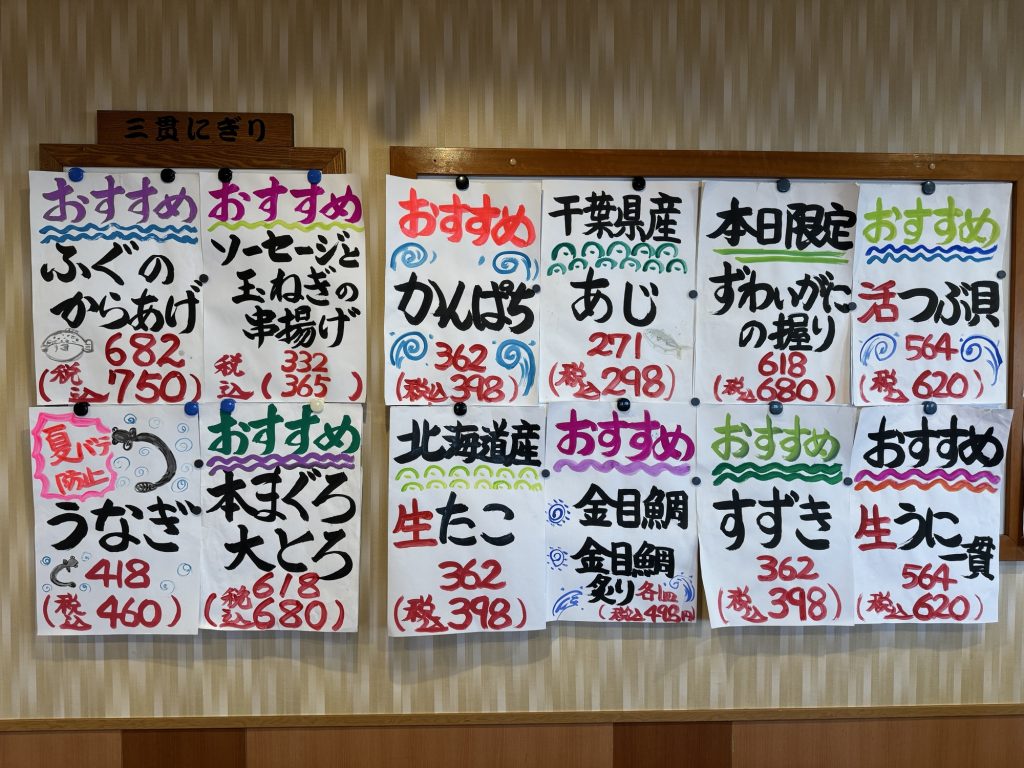 三貫にぎり
おすすめ
ふぐの
からあげ
682
(税込750)
おすすめ
ソーセージと
玉ねぎの
串揚げ
332
税込(365)
おすすめ
かんぱち
362
(税込398)
千葉県産
あじ
271
(税込298)
本日限定
ずわいがに
の握り
618
(税込680)
おすすめ
活つぶ貝
564
(税込620)
夏バテ
防止
うなぎ
418
(税込460)
おすすめ
本まぐろ
大とろ
618
(税込680)
北海道産
生たこ
362
(税込398)
おすすめ
金目鯛
金目鯛
炙り各1皿
(税込498円)
おすすめ
すずき
362
(税込398)
おすすめ
生うに
一貫
564
(税込620)